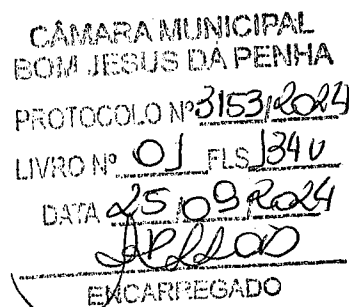 CÂMARA MUNICIPAL
BOM JESUS DA PENHA
PROTOCOLO Nº 3153/2024
LIVRO Nº 01 FLS 134v
DATA 25/09/2024
ENCARREGADO